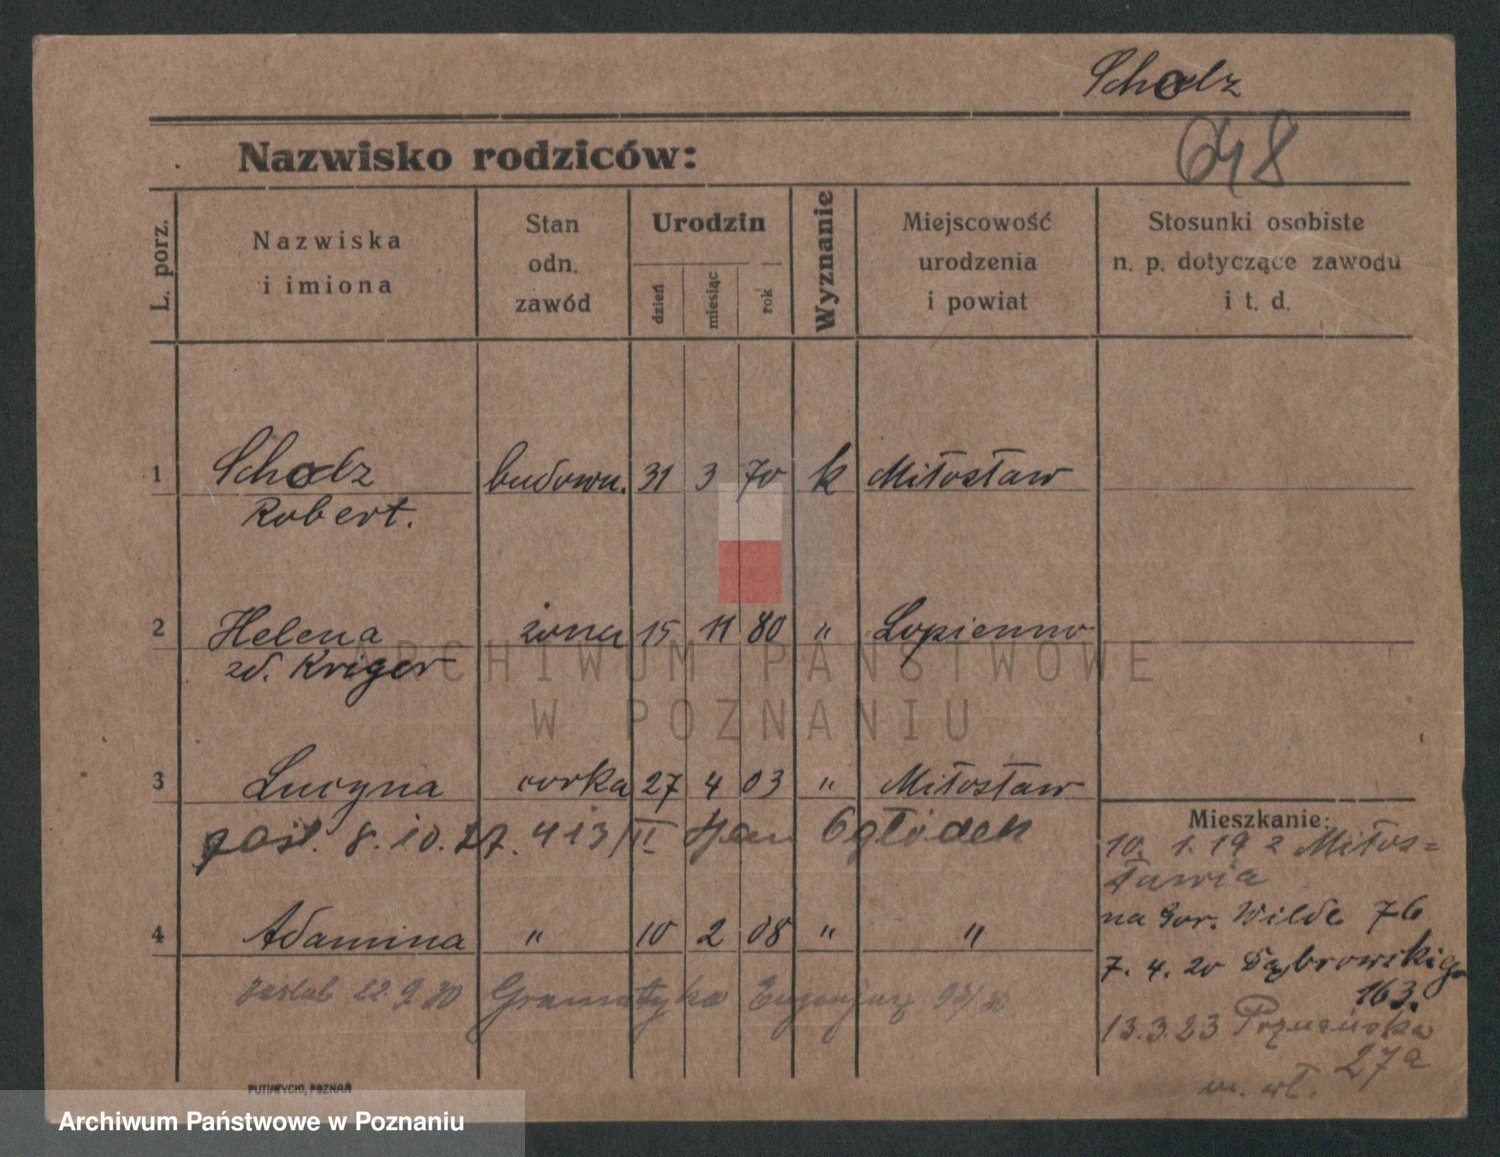 Scholz
648
Nazwisko rodziców:
L. porz.
Nazwiska
i imiona
Stan
odn.
zawód
Urodzin
dzień
miesiąc
rok
Wyznanie
Miejscowość
urodzenia
i powiat
Stosunki osobiste
n. p. dotyczące zawodu
i t. d.
1 Scholz budown. 31 3 70 k Miłosław
Robert.
2 Helena żona 15 11 80 " Łopienno
zd. Kriger
ARCHIWUM PAŃSTWOWE
W POZNANIU
3 Lucyna córka 27 4 03 " Miłosław
8.10.27. 413/II Jan Ogłódek
4 Adamina " 10 2 08 " "
zaślub 22.9.30 Gramatyka Eugenjusz
Mieszkanie:
10. 1. 19 z Miłos=
ławia
na Gór. Wilde 76
7. 4. 20 Dąbrowskiego
163.
13.3.23
27a
PUTIATYCKI, POZNAŃ
Archiwum Państwowe w Poznaniu